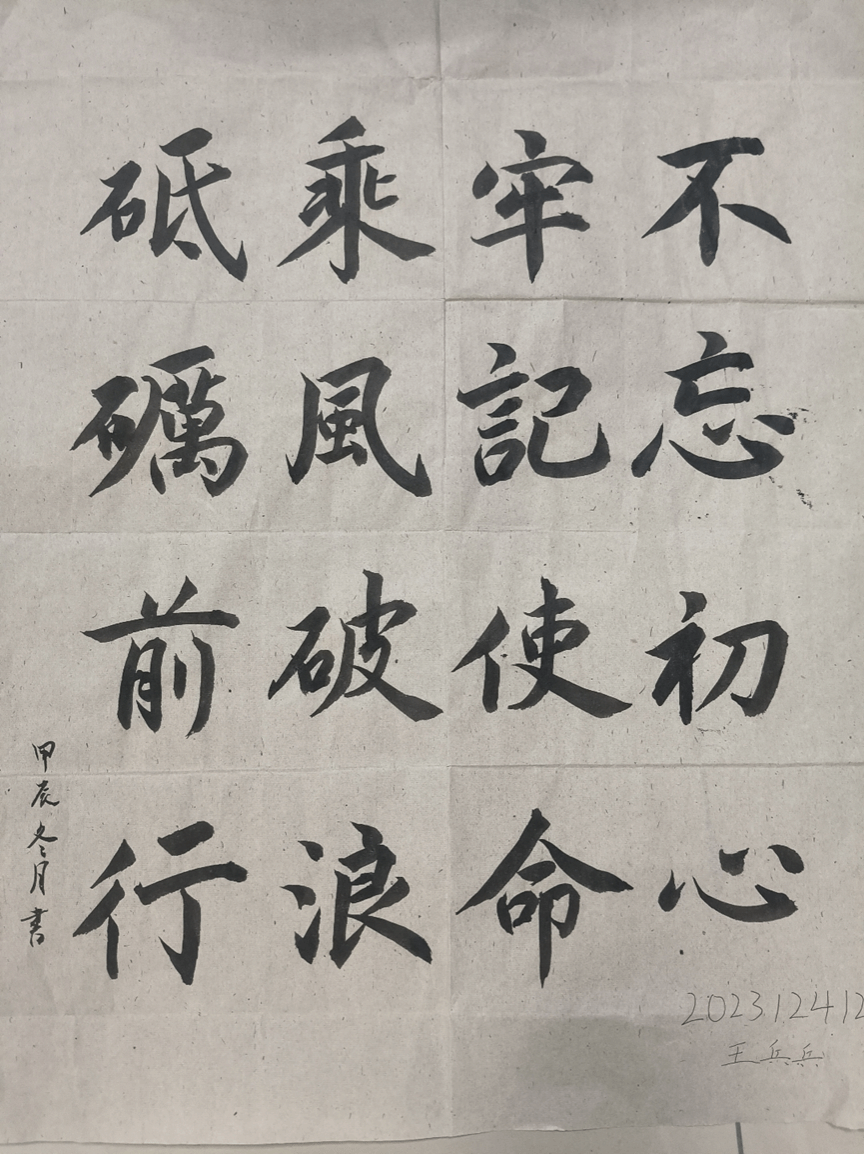 不忘初心
牢記使命
乘風破浪
砥礪前行
甲辰冬月書
202312412
王兵兵